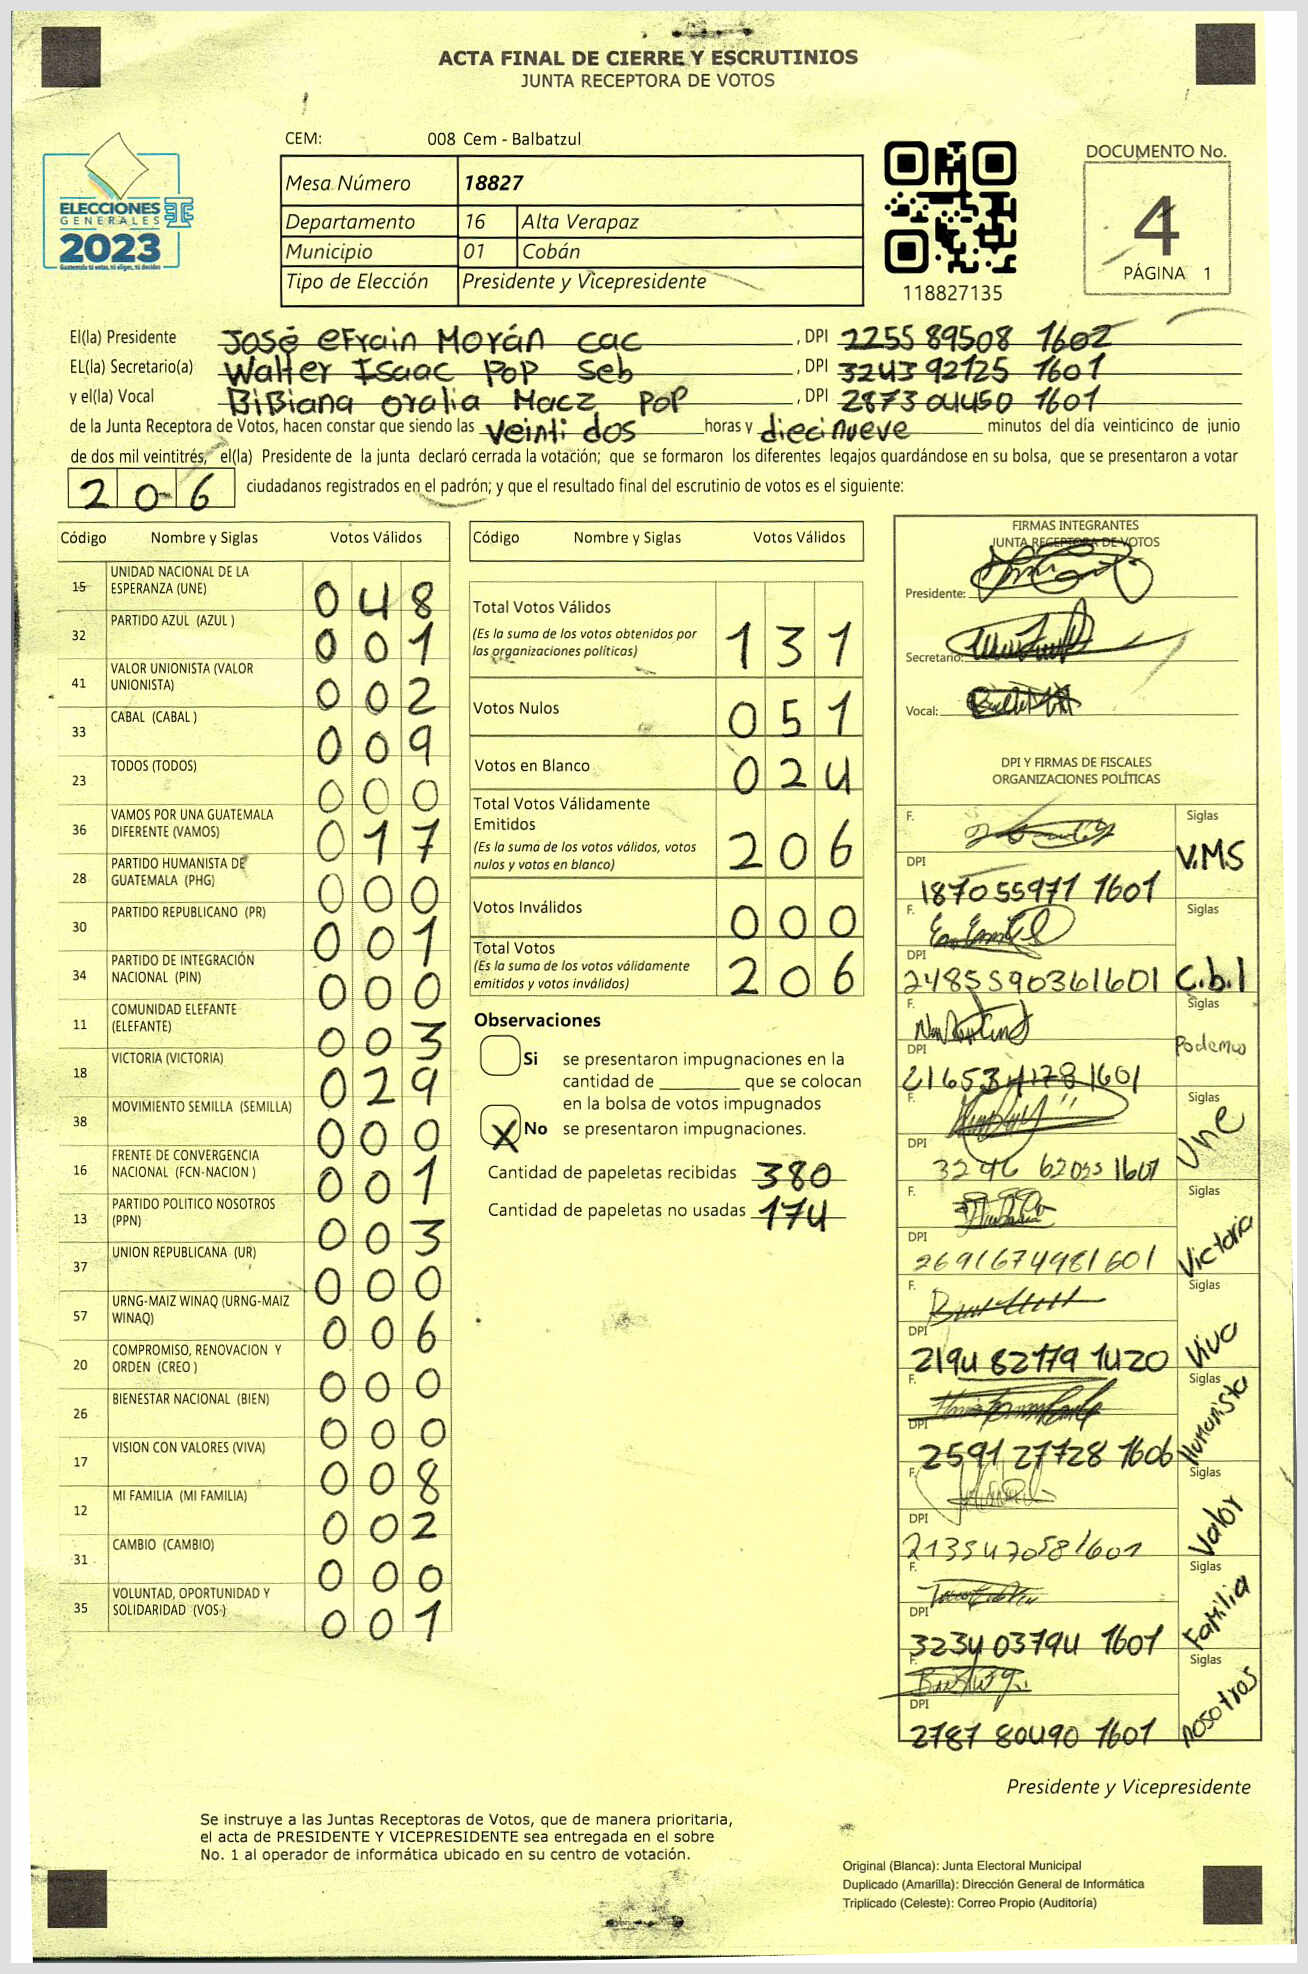 ACTA FINAL DE CIERRE Y ESCRUTINIOS
JUNTA RECEPTORA DE VOTOS
ELECCIONES
GENERALES
2023
Guatemala tú votas, tú eliges, tú decides
CEM: 008 Cem - Balbatzul
Mesa Número 18827
Departamento 16 Alta Verapaz
Municipio 01 Cobán
Tipo de Elección Presidente y Vicepresidente
118827135
DOCUMENTO No.
4
PÁGINA 1
El(la) Presidente José eFrain Morán cac , DPI 2255 89508 1602
EL(la) Secretario(a) Walter Isaac POP Seb , DPI 3243 92125 1601
y el(la) Vocal BiBiana oralia Macz POP , DPI 2873 04450 1601
de la Junta Receptora de Votos, hacen constar que siendo las veinti dos horas y diecinueve minutos del día veinticinco de junio
de dos mil veintitrés, el(la) Presidente de la junta declaró cerrada la votación; que se formaron los diferentes legajos guardándose en su bolsa, que se presentaron a votar
206 ciudadanos registrados en el padrón; y que el resultado final del escrutinio de votos es el siguiente:
Código Nombre y Siglas Votos Válidos
15 UNIDAD NACIONAL DE LA ESPERANZA (UNE) 048
32 PARTIDO AZUL (AZUL ) 001
41 VALOR UNIONISTA (VALOR UNIONISTA) 002
33 CABAL (CABAL ) 009
23 TODOS (TODOS) 000
36 VAMOS POR UNA GUATEMALA DIFERENTE (VAMOS) 017
28 PARTIDO HUMANISTA DE GUATEMALA (PHG) 000
30 PARTIDO REPUBLICANO (PR) 001
34 PARTIDO DE INTEGRACIÓN NACIONAL (PIN) 000
11 COMUNIDAD ELEFANTE (ELEFANTE) 003
18 VICTORIA (VICTORIA) 029
38 MOVIMIENTO SEMILLA (SEMILLA) 000
16 FRENTE DE CONVERGENCIA NACIONAL (FCN-NACION ) 001
13 PARTIDO POLITICO NOSOTROS (PPN) 003
37 UNION REPUBLICANA (UR) 000
57 URNG-MAIZ WINAQ (URNG-MAIZ WINAQ) 006
20 COMPROMISO, RENOVACION Y ORDEN (CREO ) 000
26 BIENESTAR NACIONAL (BIEN) 000
17 VISION CON VALORES (VIVA) 008
12 MI FAMILIA (MI FAMILIA) 002
31 CAMBIO (CAMBIO) 000
35 VOLUNTAD, OPORTUNIDAD Y SOLIDARIDAD (VOS ) 001
Código Nombre y Siglas Votos Válidos
Total Votos Válidos 131
(Es la suma de los votos obtenidos por
las organizaciones políticas)
Votos Nulos 051
Votos en Blanco 024
Total Votos Válidamente
Emitidos 206
(Es la suma de los votos válidos, votos
nulos y votos en blanco)
Votos Inválidos 000
Total Votos 206
(Es la suma de los votos válidamente
emitidos y votos inválidos)
Observaciones
Si se presentaron impugnaciones en la
cantidad de ________ que se colocan
en la bolsa de votos impugnados
X No se presentaron impugnaciones.
Cantidad de papeletas recibidas 380
Cantidad de papeletas no usadas 174
FIRMAS INTEGRANTES
JUNTA RECEPTORA DE VOTOS
Presidente:
Secretario:
Vocal:
DPI Y FIRMAS DE FISCALES
ORGANIZACIONES POLÍTICAS
F. Siglas
DPI V.MS
187055971 1601
F. Siglas
DPI
2485590361601 C.b.l
F. Siglas
DPI Podemos
21653 4178 1601
F. Siglas
DPI Une
1601
F. Siglas
DPI Victoria
2691674981601
F. Siglas
DPI Viva
2194 82179 1420
F. Siglas
DPI Humanista
2591 27728 1606
F. Siglas
DPI Valor
2135470581601
F. Siglas
DPI Familia
3234 03794 1601
F. Siglas
DPI nosotros
2787 80490 1601
Presidente y Vicepresidente
Se instruye a las Juntas Receptoras de Votos, que de manera prioritaria,
el acta de PRESIDENTE Y VICEPRESIDENTE sea entregada en el sobre
No. 1 al operador de informática ubicado en su centro de votación.
Original (Blanca): Junta Electoral Municipal
Duplicado (Amarilla): Dirección General de Informática
Triplicado (Celeste): Correo Propio (Auditoría)